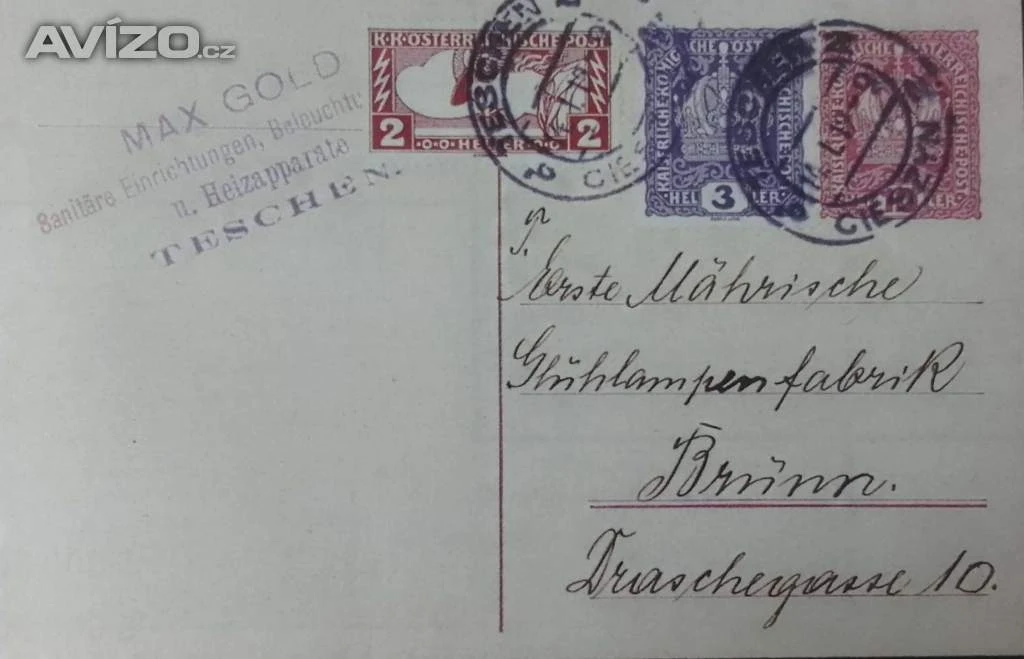 AVÍZO.cz
MAX GOLD
Sanitäre Einrichtungen, Beleucht
u. Heizapparate
TESCHEN.
K.K. ÖSTERREICHISCHE POST
2 HELLER 2
TESCHEN 2
CIESZ
KAISERLICHE KÖNIGLICHE ÖSTERREICHISCHE POST
HELLER 3
TESCHEN
CIESZYN
P. T.
Erste Mährische
Glühlampenfabrik
Brünn.
Draschegasse 10.